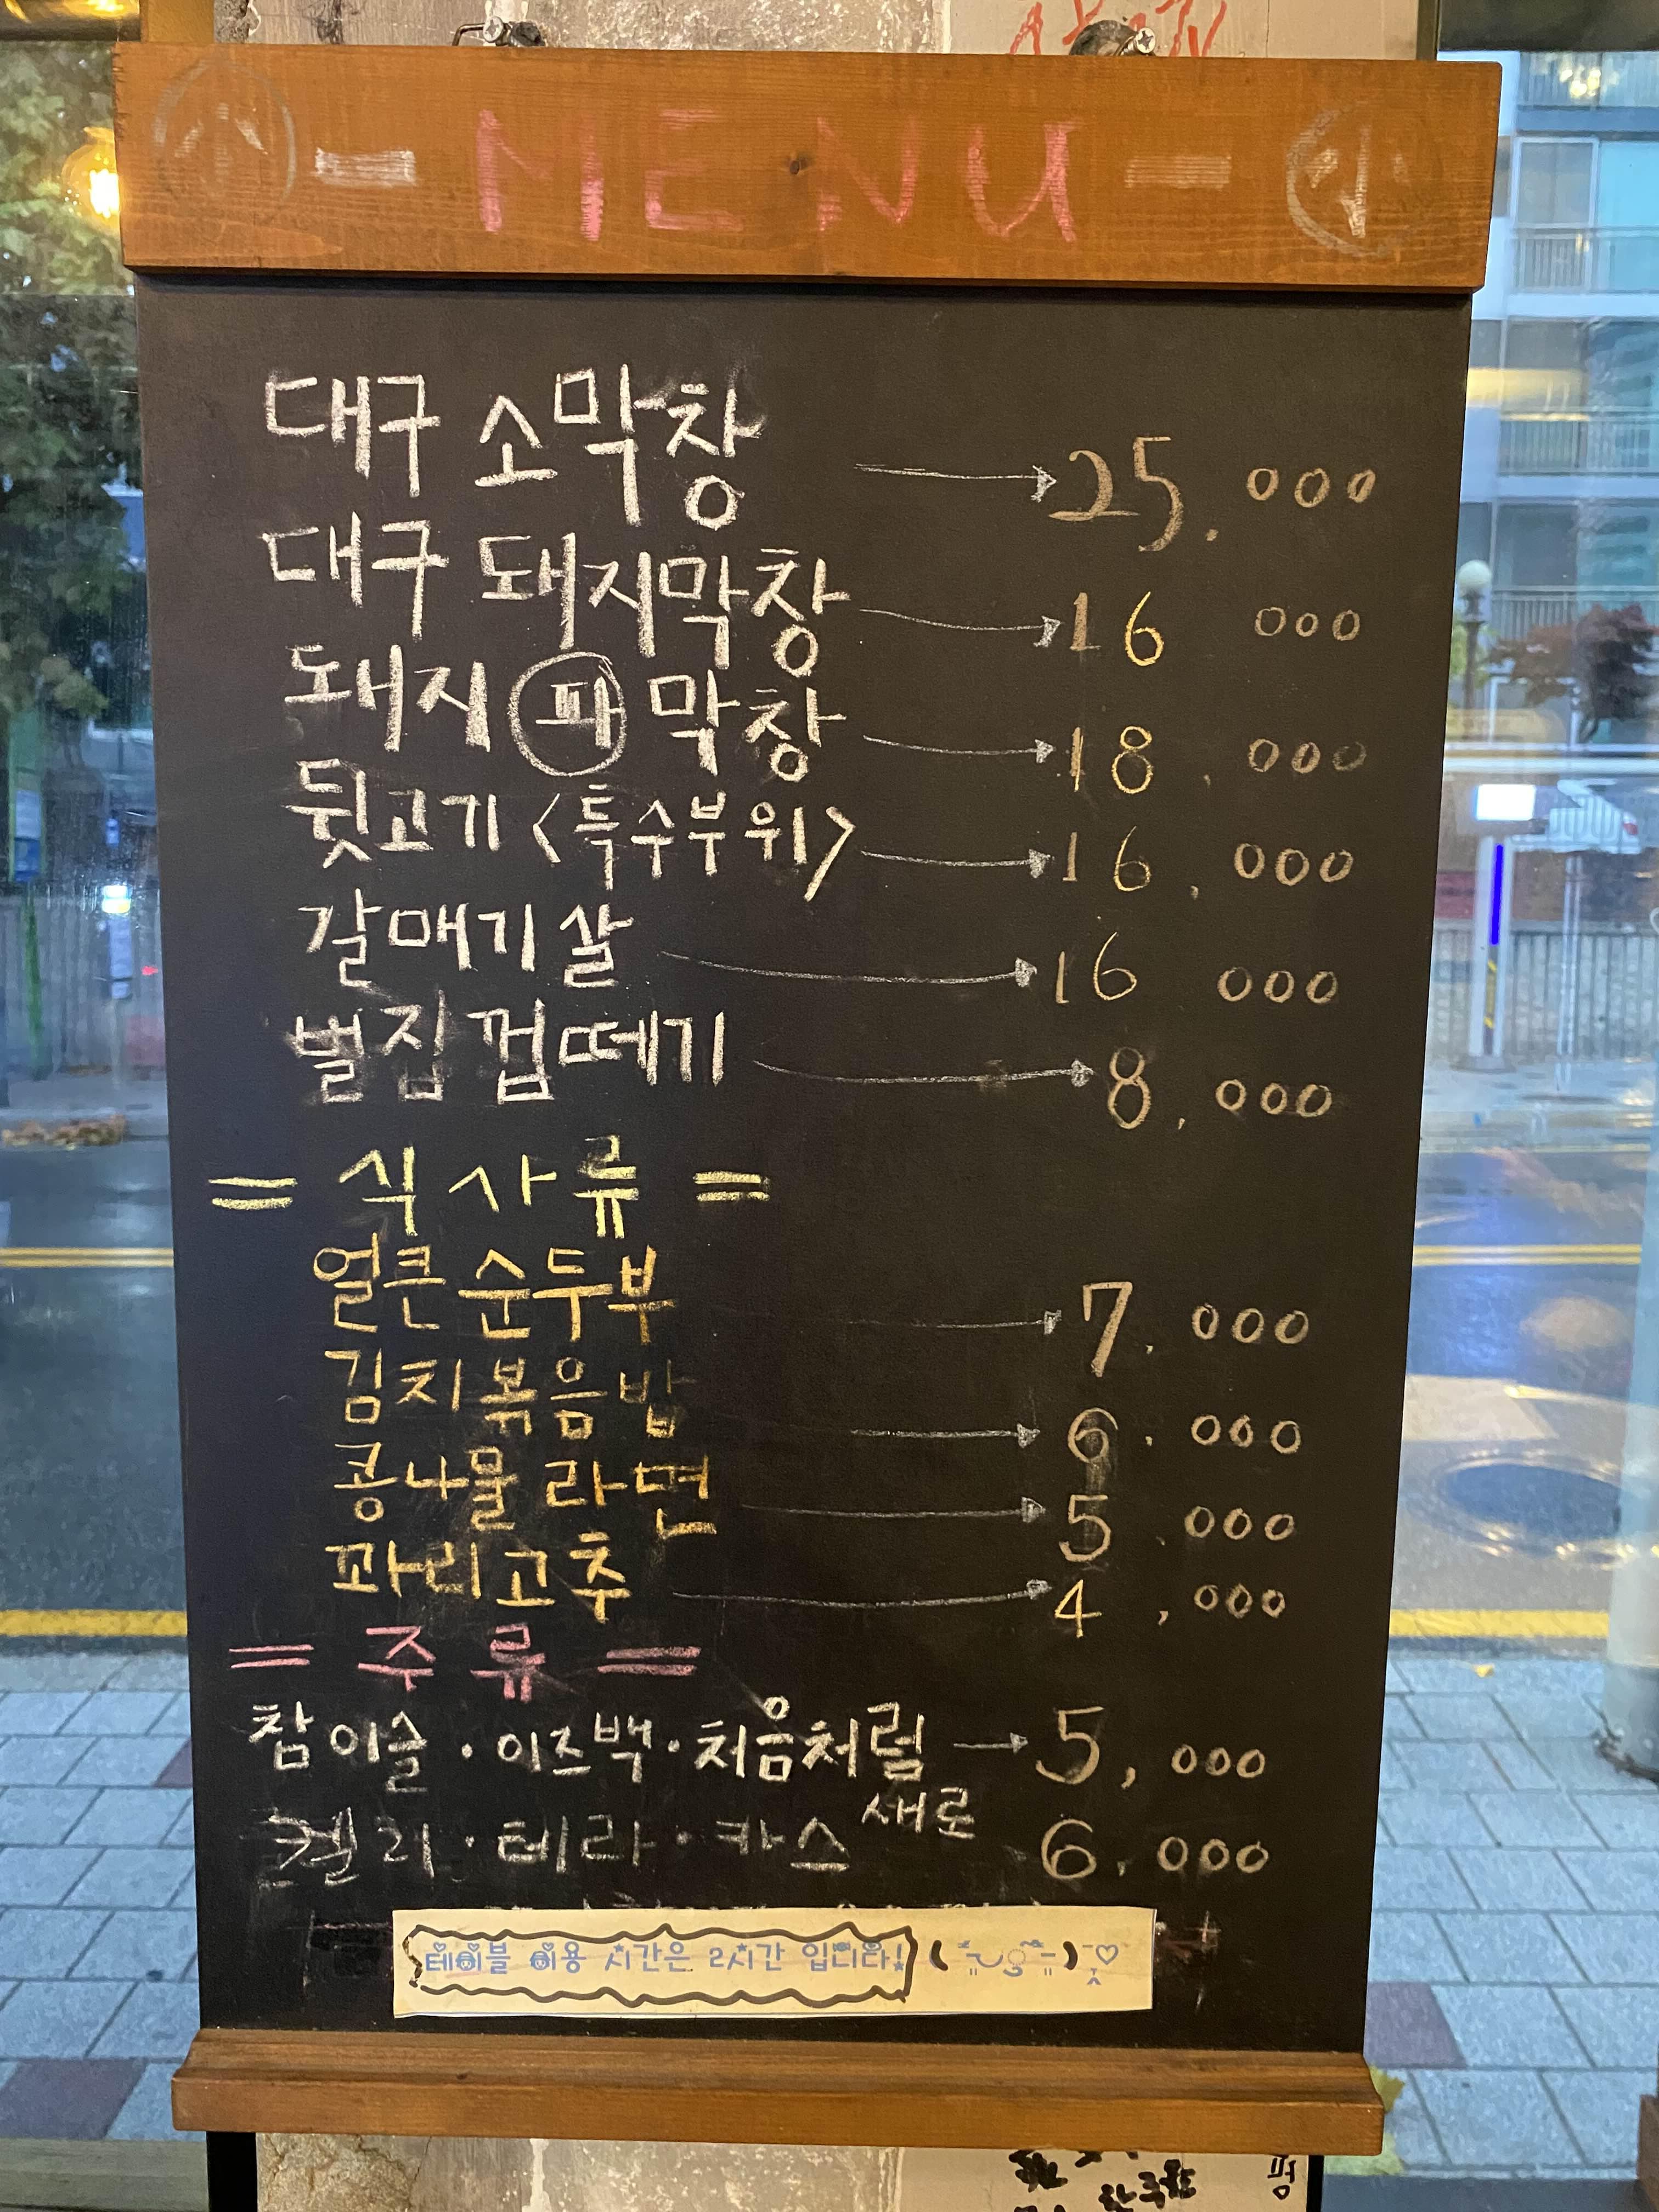 - MENU -
대구 소막창 → 25.000
대구 돼지막창 → 16 000
돼지 파 막창 → 18.000
뒷고기 <특수부위> → 16,000
갈매기살 → 16 000
벌집껍떼기 → 8,000
= 식사류 =
얼큰 순두부 → 7.000
김치볶음밥 → 6.000
콩나물라면 → 5.000
꽈리고추 → 4,000
= 주류 =
참이슬·이즈백·처음처럼 → 5,000
새로
켈리·테라·카스 6.000
테이블 이용 시간은 2시간 입니다!